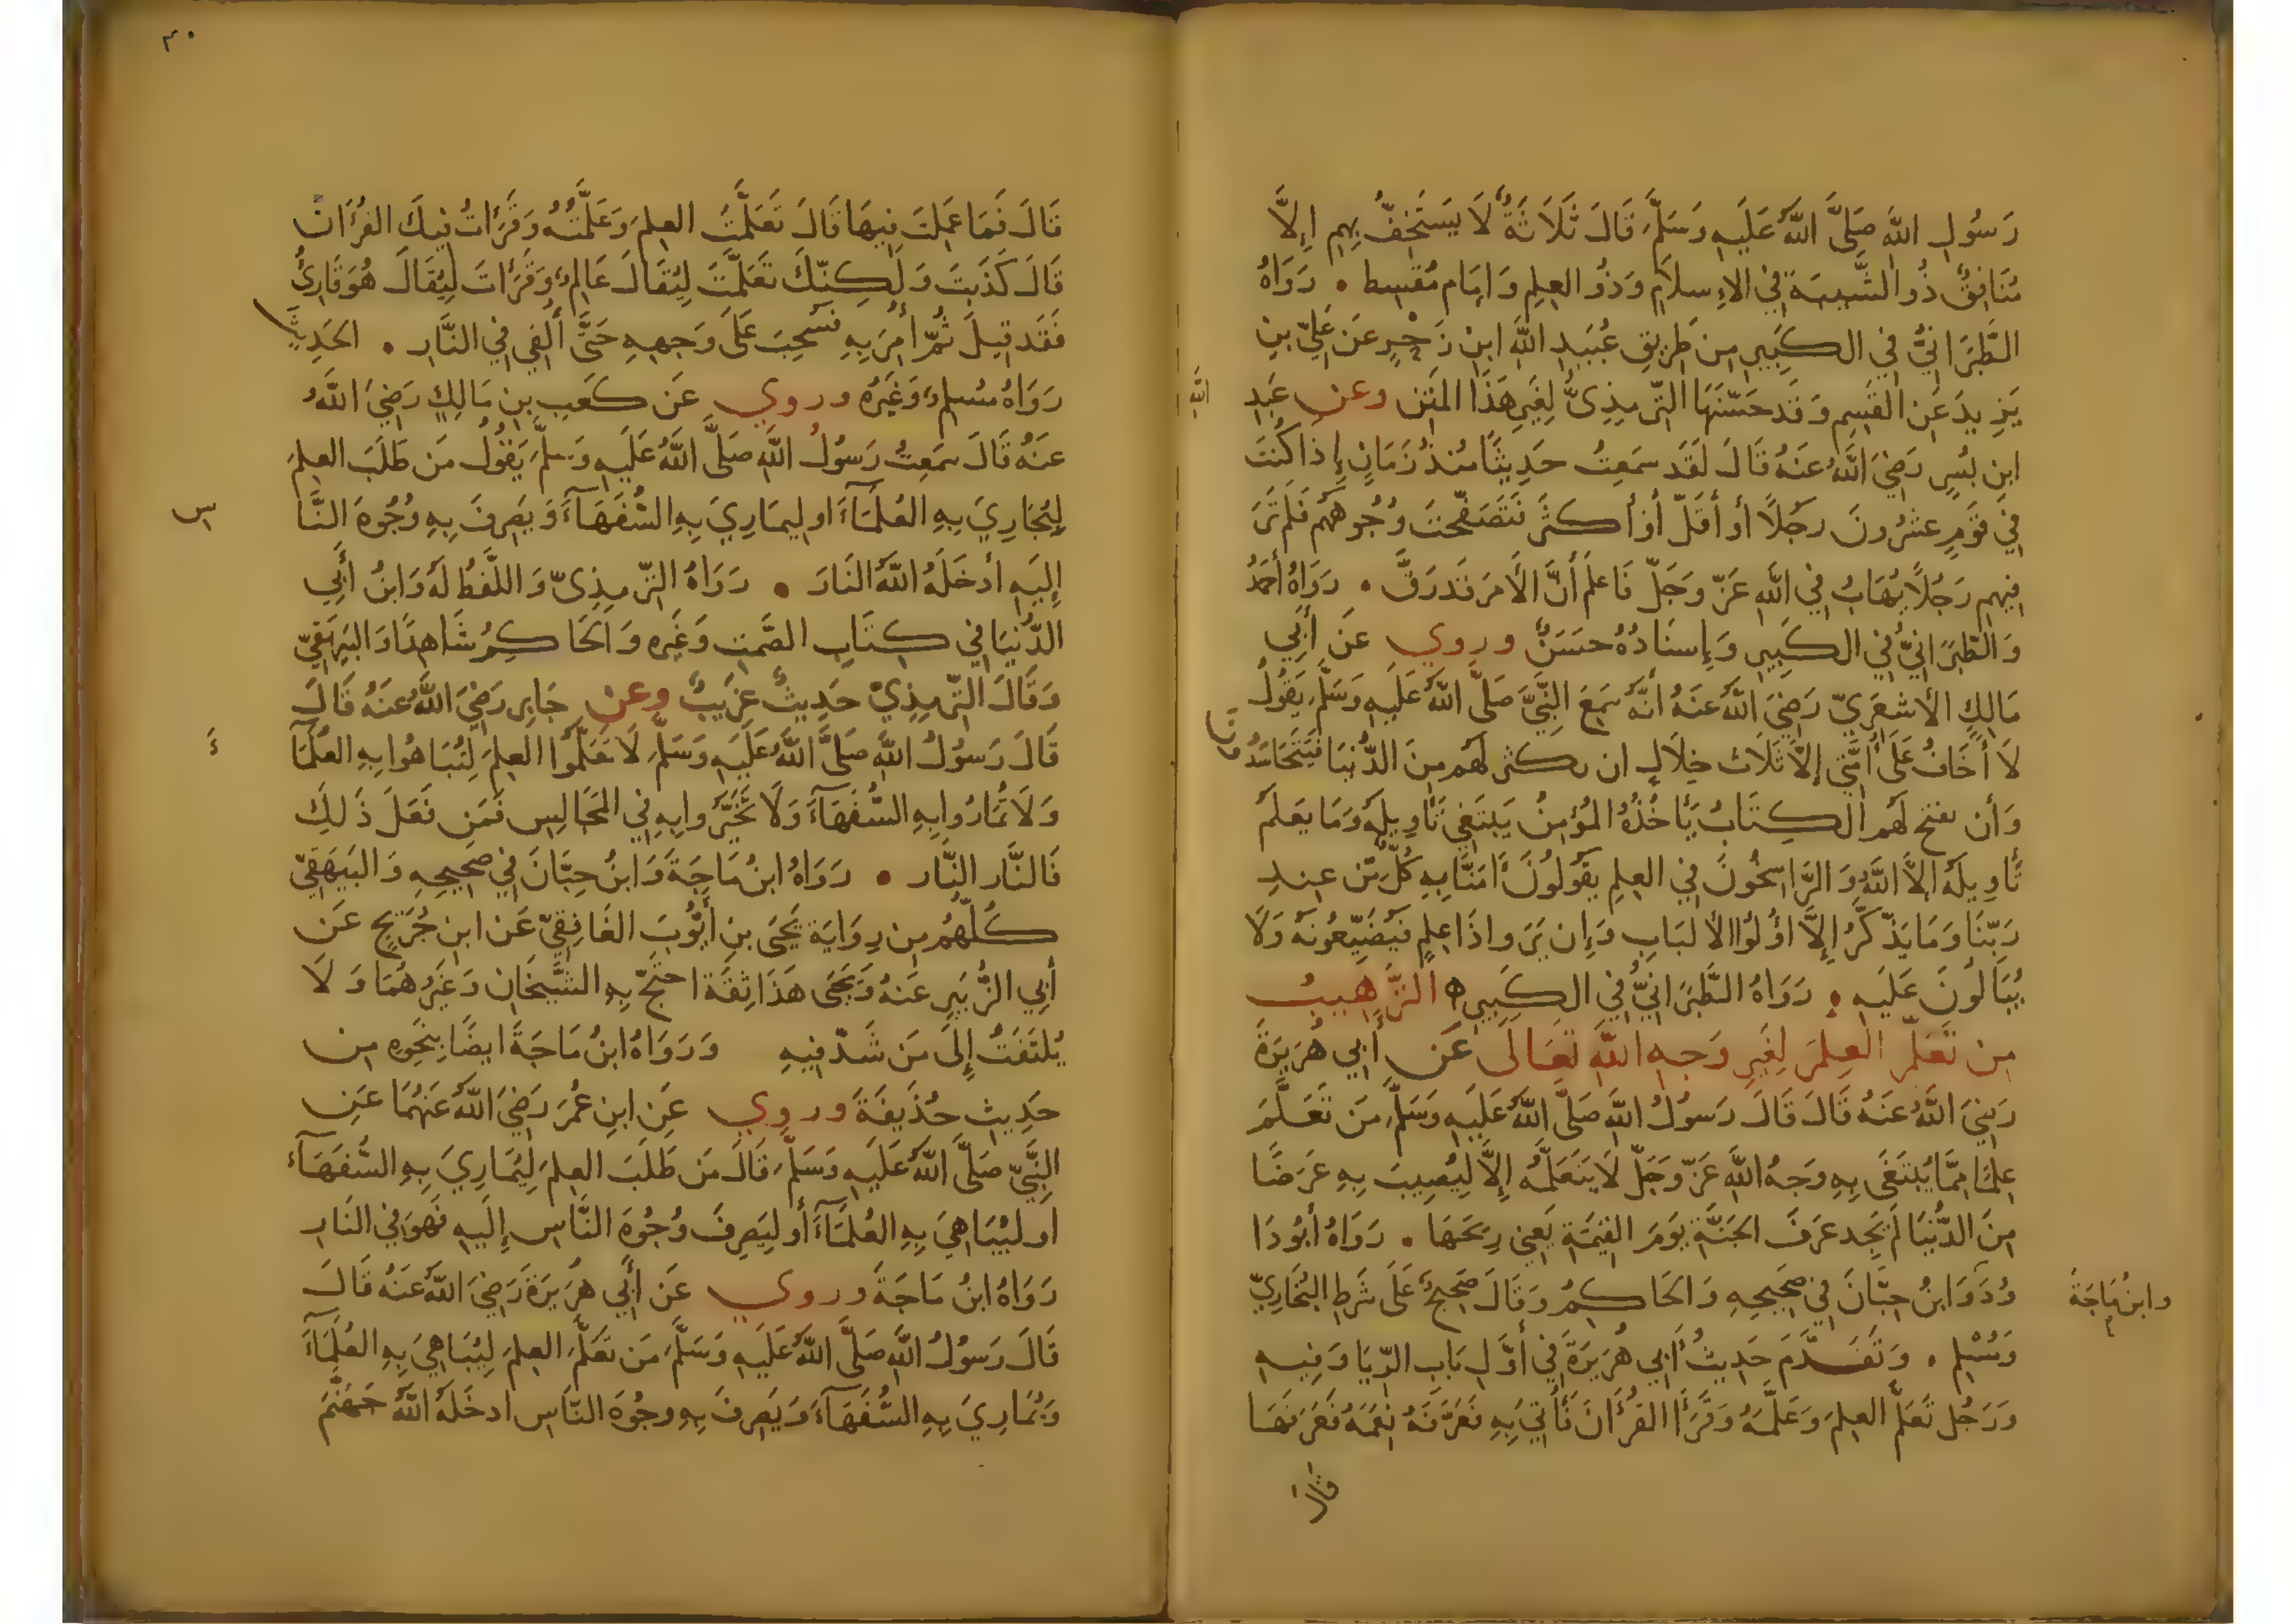 رَسُولِ اللَّهِ صَلَّى اللَّهُ عَلَيهِ وَسَلَّمَ قَالَ ثَلَاثَةٌ لَا يَستَخِفُّ بِهِم إِلَّا
مُنَافِقٌ ذُو الشَّيبَةِ فِي الاِسلَامِ وَذُو العِلمِ وَاِمَام مُقسِط . رَوَاهُ
الطَّبَرَانِيُّ فِي الكَبِيرِ مِن طَرِيقِ عُبَيدِ اللَّهِ ابنِ زَحرٍ عَن عَلِيِّ بنِ
يَزِيدَ عَنِ القَسِمِ وَقَد حَسَّنَهَا التِّرمِذِيُّ لِغَيرِ هَذَا المَتنِ وعن عَبدِ اللَّهِ
ابنِ بُسرٍ رَضِيَ اللَّهُ عَنهُ قَالَ لَقَد سَمِعتُ حَدِيثًا مُنذُ زَمَانٍ إِذَا كُنتَ
فِي قَومٍ عِشرُونَ رَجُلًا أو أَقَلّ أَو أَكثَر فَتَصَفَّحتَ وُجُوهَهُم فَلَم تَرَ
فِيهِم رَجُلًا يُهَابُ فِي اللَّهِ عَزّ وَجَلّ فَاعلَم أَنَّ الأَمرَ قَد رَقَّ . رَوَاهُ أَحمَدُ
وَالطَّبَرَانِيُّ فِي الكَبِيرِ وَإِسنَادُهُ حَسَنٌ وروي عَن أَبِي
مَالِكٍ الأَشعَرِيّ رَضِيَ اللَّهُ عَنهُ أَنَّهُ سَمِعَ النَّبِيَّ صَلَّى اللَّهُ عَلَيهِ وَسَلَّمَ يَقُولُ
لَا أَخَافُ عَلَى أُمَّتِي إِلَّا ثَلَاث خِلَالٍ ان يكثر لَهُم مِنَ الدُّنيَا فَيَتَحَاسَدُوا
وَأَن يفتح لَهُم الكِتَابُ يَأخُذُهُ المُؤمِنُ يَبتَغِي تَأوِيلَهُ وَمَا يَعلَمُ
تَأوِيلَهُ إِلَّا اللَّهُ وَالرَّاسِخُونَ فِي العِلمِ يَقُولُونَ ءَامَنَّا بِهِ كُلٌّ مِّن عِندِ
رَبِّنَا وَمَا يَذَّكَّرُ إِلَّا اؤلُوا الالبَابِ وَإِن يَرَوا ذَا عِلمٍ فَيُضَيِّعُونَهُ وَلَا
يُبَالُونَ عَلَيهِ . رَوَاهُ الطَّبَرَانِيُّ فِي الكَبِيرِ ه التَّرهِيبُ
مِن تَعَلُّمِ العِلمِ لِغَيرِ وَجهِ اللَّهِ تَعَالَى عَن أَبِي هُرَيرَةَ
رَضِيَ اللَّهُ عَنهُ قَالَ قَالَ رَسُولُ اللَّهِ صَلَّى اللَّهُ عَلَيهِ وَسَلَّمَ مَن تَعَلَّمَ
عِلمًا مِمَّا يُبتَغَى بِهِ وَجهُ اللَّهِ عَزّ وَجَلّ لَا يَتَعَلَّمُهُ إِلَّا لِيُصِيبَ بِهِ عَرَضًا
مِنَ الدُّنيَا لَم يَجِد عَرفَ الجَنَّةِ يَومَ القِيمَةِ يَعنِي رِيحَهَا . رَوَاهُ أَبُو دَا
وُدَ وَابنُ حِبَّانَ فِي صَحِيحِهِ وَالحَاكِمُ وَقَالَ صَحِيحٌ عَلَى شَرطِ البُخَارِيّ
وابنُ مَاجَةَ
وَمُسْلِم . وَتَقَدَّمَ حَدِيثُ أَبِي هُرَيرَةَ فِي أَوَّلِ بَابِ الرِّيَا وَفِيهِ
وَرَجُل تَعَلَّمَ العِلمَ وَعَلَّمَهُ وَقَرَأَ القُرءَانَ فَأُتِيَ بِهِ فَعَرَّفَهُ نِعَمَهُ فَعَرَفَهَا
قال
٣٠
قَالَ فَمَا عَمِلتَ فِيهَا قَالَ تَعَلَّمتُ العِلمَ وَعَلَّمتُهُ وَقَرَاتُ فِيكَ القُرءَانَ
قَالَ كَذَبتَ وَلَكِنَّكَ تَعَلَّمتَ لِيُقَالَ عَالِمٌ وَقَرَاتَ لِيُقَالَ هُوَ قَارِئٌ
فَقَد قِيلَ ثُمّ أُمِرَ بِهِ فَسُحِبَ عَلَى وَجهِهِ حَتَّى أُلقِيَ فِي النَّارِ . الحَدِيثَ
رَوَاهُ مُسلِمٌ وَغَيرُهُ وروي عَن كَعبِ بنِ مَالِكٍ رَضِيَ اللَّهُ
عَنهُ قَالَ سَمِعتُ رَسُولَ اللَّهِ صَلَّى اللَّهُ عَلَيهِ وَسَلَّمَ يَقُولُ مَن طَلَبَ العِلمَ
لِيُجَارِيَ بِهِ العُلَمَآءَ او لِيمَارِيَ بِهِ السُّفَهَآءَ وَيَصرِفَ بِهِ وُجُوهَ النَّا
س
إِلَيهِ أَدخَلَهُ اللَّهُ النَارَ . رَوَاهُ التِّرمِذِيّ وَاللَّفظُ لَهُ وَابنُ أَبِي
الدُّنيَا فِي كِتَابِ الصَّمتِ وَغَيرِهِ وَالحَاكِمُ شَاهِدًا وَالبَيهَقِيّ
وَقَالَ التِّرمِذِيُ حَدِيثٌ غَرِيبٌ وعن جَابِرٍ رَضِيَ اللَّهُ عَنهُ قَالَ
قَالَ رَسُولُ اللَّهِ صَلَّى اللَّهُ عَلَيهِ وَسَلَّمَ لَا تَعَلَّمُوا العِلمَ لِتُبَاهُوا بِهِ العُلَمَآ
ءَ
وَلَا تُمَارُوا بِهِ السُّفَهَآءَ وَلَا تَخَيَّرُوا بِهِ فِي المَجَالِسِ فَمَن فَعَلَ ذَلِكَ
فَالنَّار النَّار . رَوَاهُ ابنُ مَاجَةَ وَابنُ حِبَّانَ فِي صَحِيحِهِ وَالبَيهَقِيّ
كُلُّهُم مِن رِوَايَةِ يَحيَى بنِ أَيُّوبَ الغَافِقِيّ عَن ابنِ جُرَيجٍ عَن
أَبِي الزُّبَيرِ عَنهُ وَيَحيَى هَذَا ثِقَة احتَجّ بِهِ الشَّيخَانِ وَغَيرُهُمَا وَلَا
يُلتَفَتُ إِلَى مَن شَذّ فِيهِ وَرَوَاهُ ابنُ مَاجَةَ ايضًا بِنَحوِهِ مِن
حَدِيثِ حُذَيفَةَ وروي عَنِ ابنِ عُمَرَ رَضِيَ اللَّهُ عَنهُمَا عَنِ
النَّبِيّ صَلَّى اللَّهُ عَلَيهِ وَسَلَّمَ قَالَ مَن طَلَبَ العِلمَ لِيُمَارِيَ بِهِ السُّفَهَآءَ
او لِيُبَاهِيَ بِهِ العُلَمَآءَ أَو لِيَصرِفَ وُجُوهَ النَّاسِ إِلَيهِ فَهوَ فِي النَارِ
رَوَاهُ ابنُ مَاجَةَ وروي عَن أَبِي هُرَيرَةَ رَضِيَ اللَّهُ عَنهُ قَالَ
قَالَ رَسُولُ اللَّهِ صَلَّى اللَّهُ عَلَيهِ وَسَلَّمَ مَن تَعَلَّمَ العِلمَ لِيُبَاهِيَ بِهِ العُلَمَآءَ
وَيُمَارِيَ بِهِ السُّفَهَآءَ وَيَصرِفَ بِهِ وجُوهَ النَّاسِ ادخَلَهُ اللَّهُ جَهَنَّمَ